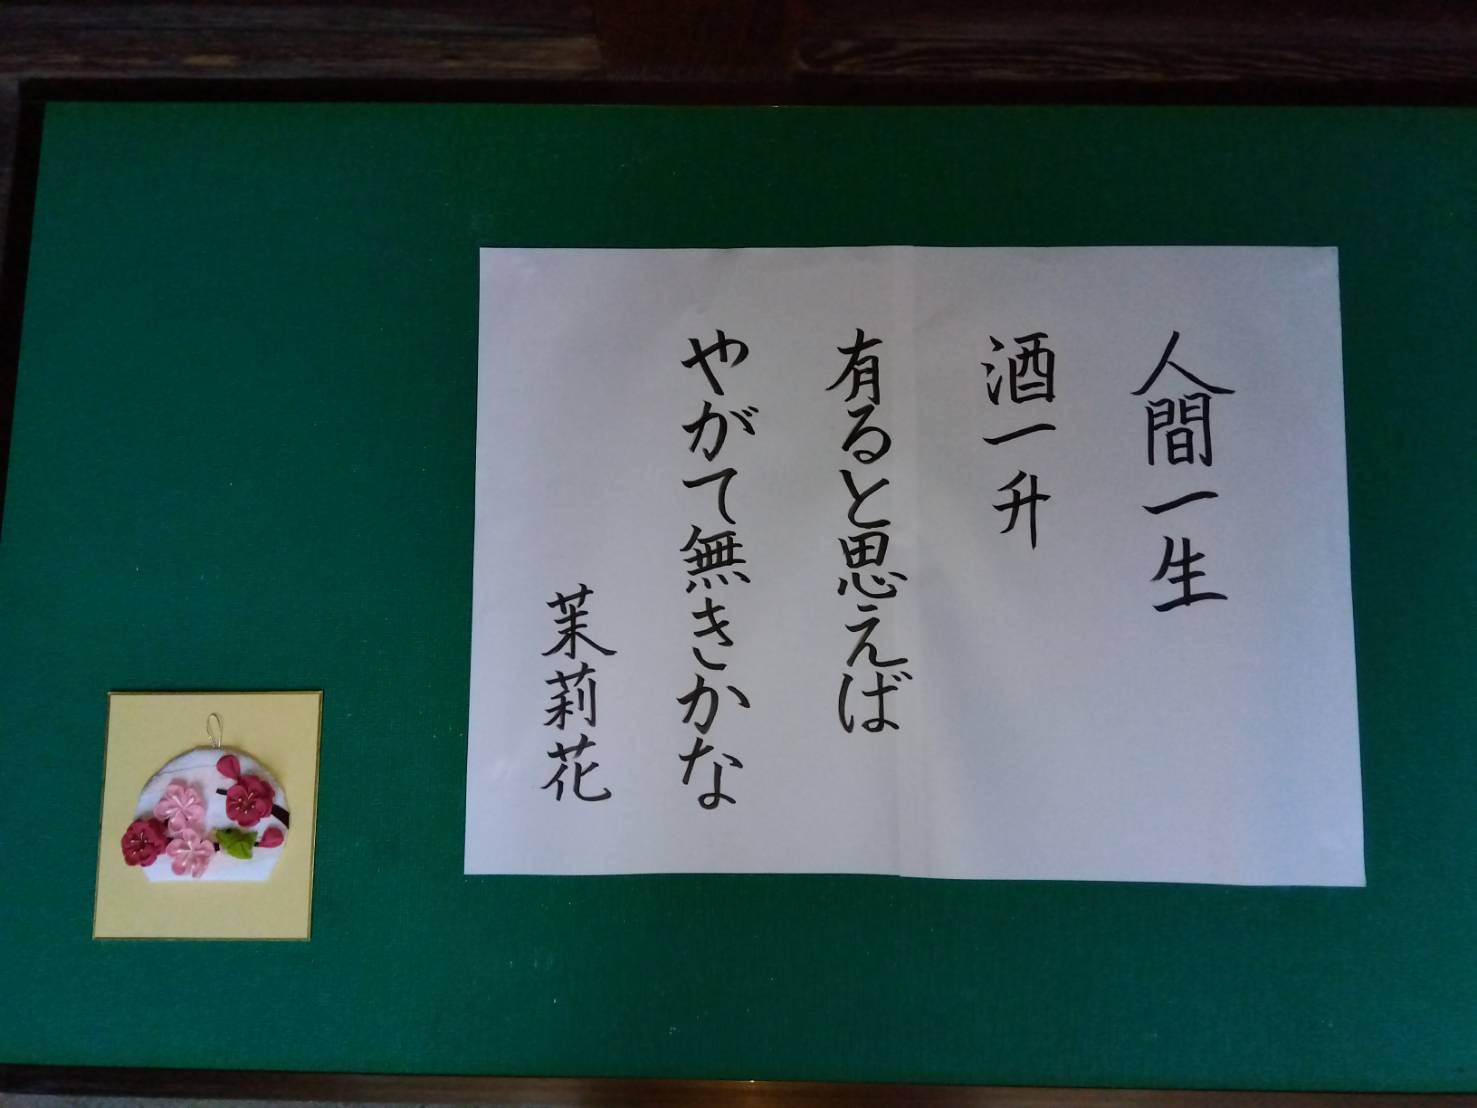 人間一生
酒一升
有ると思えば
やがて無きかな
茉莉花